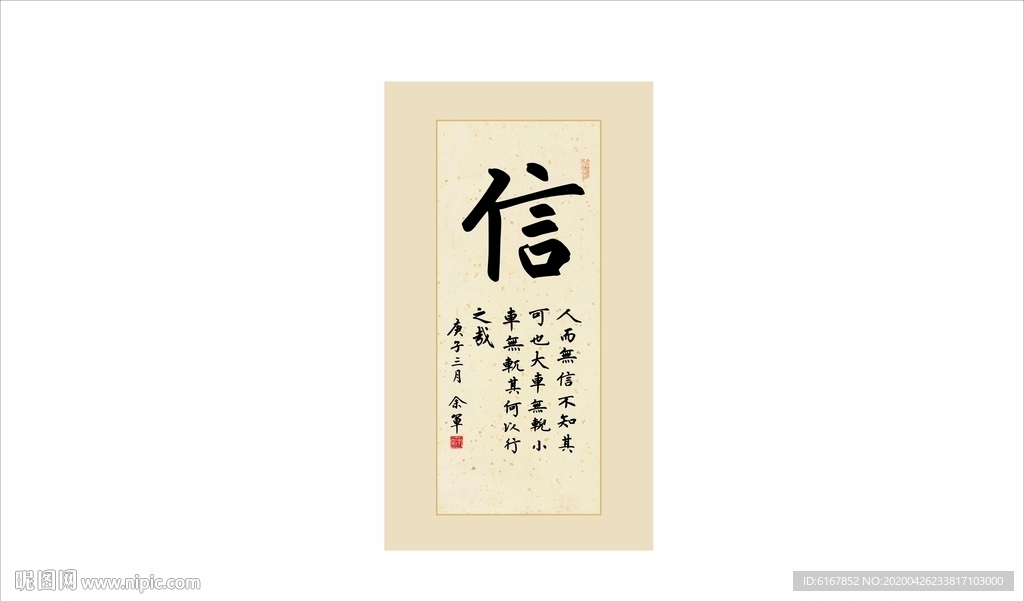 信
人而無信不知其
可也大車無輗小
車無軏其何以行
之哉
庚子三月 余軍
昵图网 www.nipic.com
ID:6167852 NO:20200426233817103000